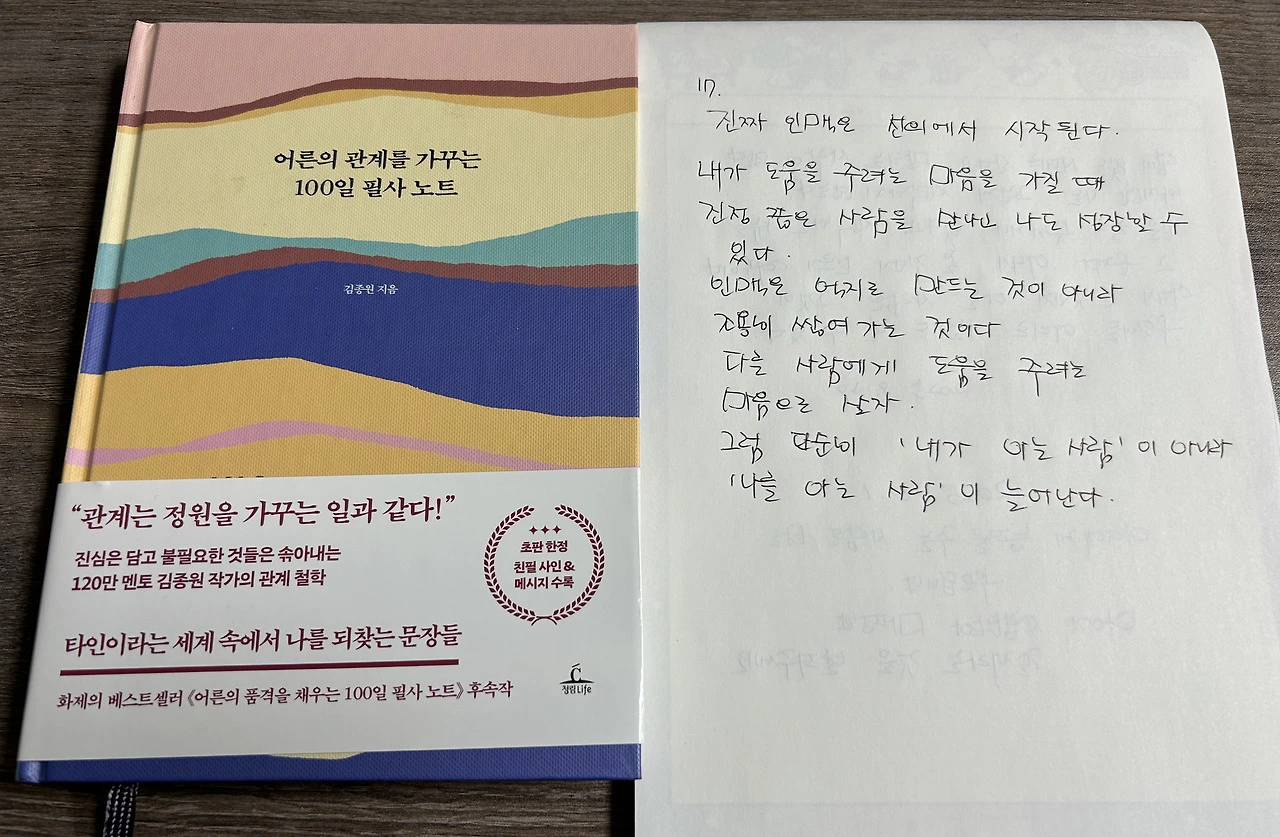 어른의 관계를 가꾸는
100일 필사 노트
김종원 지음
“관계는 정원을 가꾸는 일과 같다!”
진심은 담고 불필요한 것들은 솎아내는
120만 멘토 김종원 작가의 관계 철학
초판 한정
친필 사인 &
메시지 수록
타인이라는 세계 속에서 나를 되찾는 문장들
화제의 베스트셀러 《어른의 품격을 채우는 100일 필사 노트》 후속작
청림Life
17.
진짜 인맥은 선의에서 시작된다.
내가 도움을 주려는 마음을 가질 때
진정 좋은 사람을 만나고 나도 성장할 수
있다.
인맥은 억지로 만드는 것이 아니라
조용히 쌓여가는 것이다
다른 사람에게 도움을 주려는
마음으로 살자.
그럼 단순히 '내가 아는 사람'이 아니라
'나를 아는 사람'이 늘어난다.